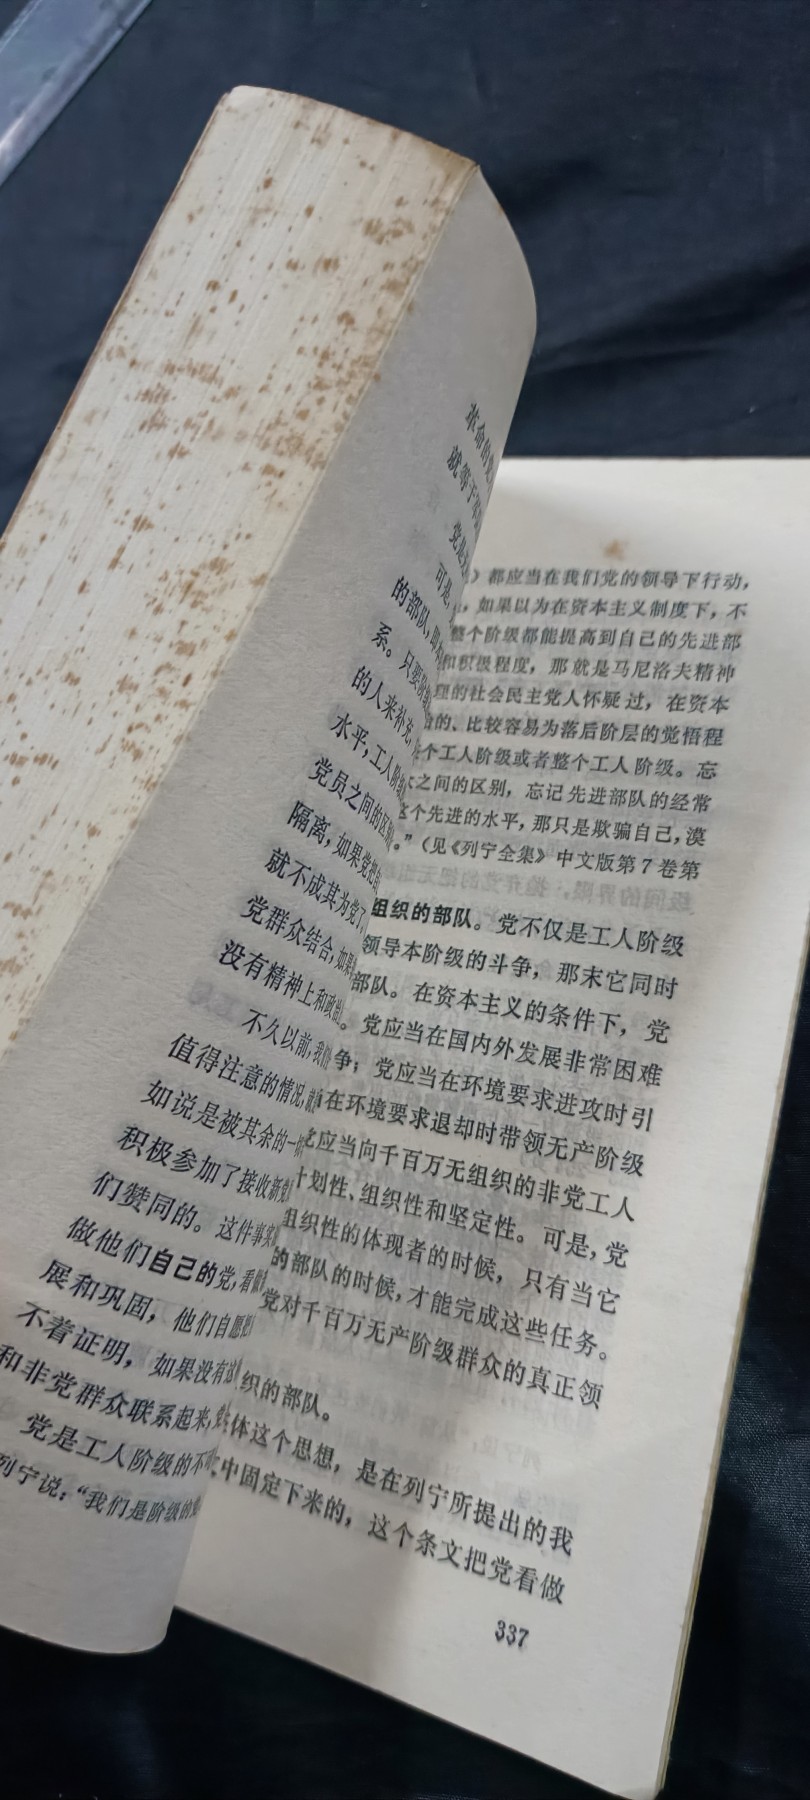 革命的
就等于
党是
可是,
的部队,
系。只要
的人来补充,
水平,工人阶级
党员之间的区
隔离,如果党把
就不成其为党了
党群众结合,如果
没有精神上和政
不久以前,我
值得注意的情况,
如说是被其余的一
积极参加了接收新
们赞同的。这件事实
做他们自己的党,看做
展和巩固,他们自愿把
不着证明,如果没有这
和非党群众联系起来,
党是工人阶级的不
列宁说:“我们是阶级的
)都应当在我们党的领导下行动,
,如果以为在资本主义制度下,不
整个阶级都能提高到自己的先进部
和积极程度,那就是马尼洛夫精神
理的社会民主党人怀疑过,在资本
的、比较容易为落后阶层的觉悟程
个工人阶级或者整个工人阶级。忘
之间的区别,忘记先进部队的经常
个先进的水平,那只是欺骗自己,漠
。”(见《列宁全集》中文版第7卷第
组织的部队。党不仅是工人阶级
领导本阶级的斗争,那末它同时
部队。在资本主义的条件下,党
。党应当在国内外发展非常困难
争;党应当在环境要求进攻时引
在环境要求退却时带领无产阶级
应当向千百万无组织的非党工人
划性、组织性和坚定性。可是,党
组织性的体现者的时候,只有当它
的部队的时候,才能完成这些任务。
党对千百万无产阶级群众的真正领
织的部队。
体这个思想,是在列宁所提出的我
中固定下来的,这个条文把党看做
337